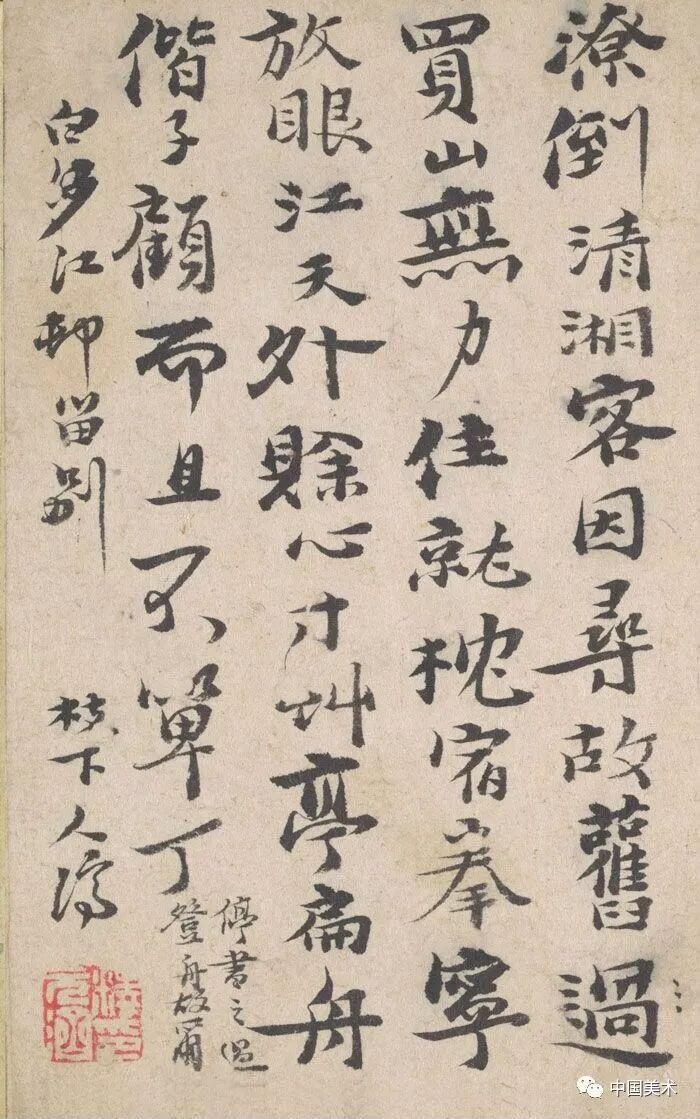 潦倒清湘客因尋故舊過
買山無力住就枕宿拳寧
放眼江天外賒心寸艸亭扁舟
偕子顧而且不單丁
停書之過
登舟故
白沙江邨留別
枝下人濟
中国美术